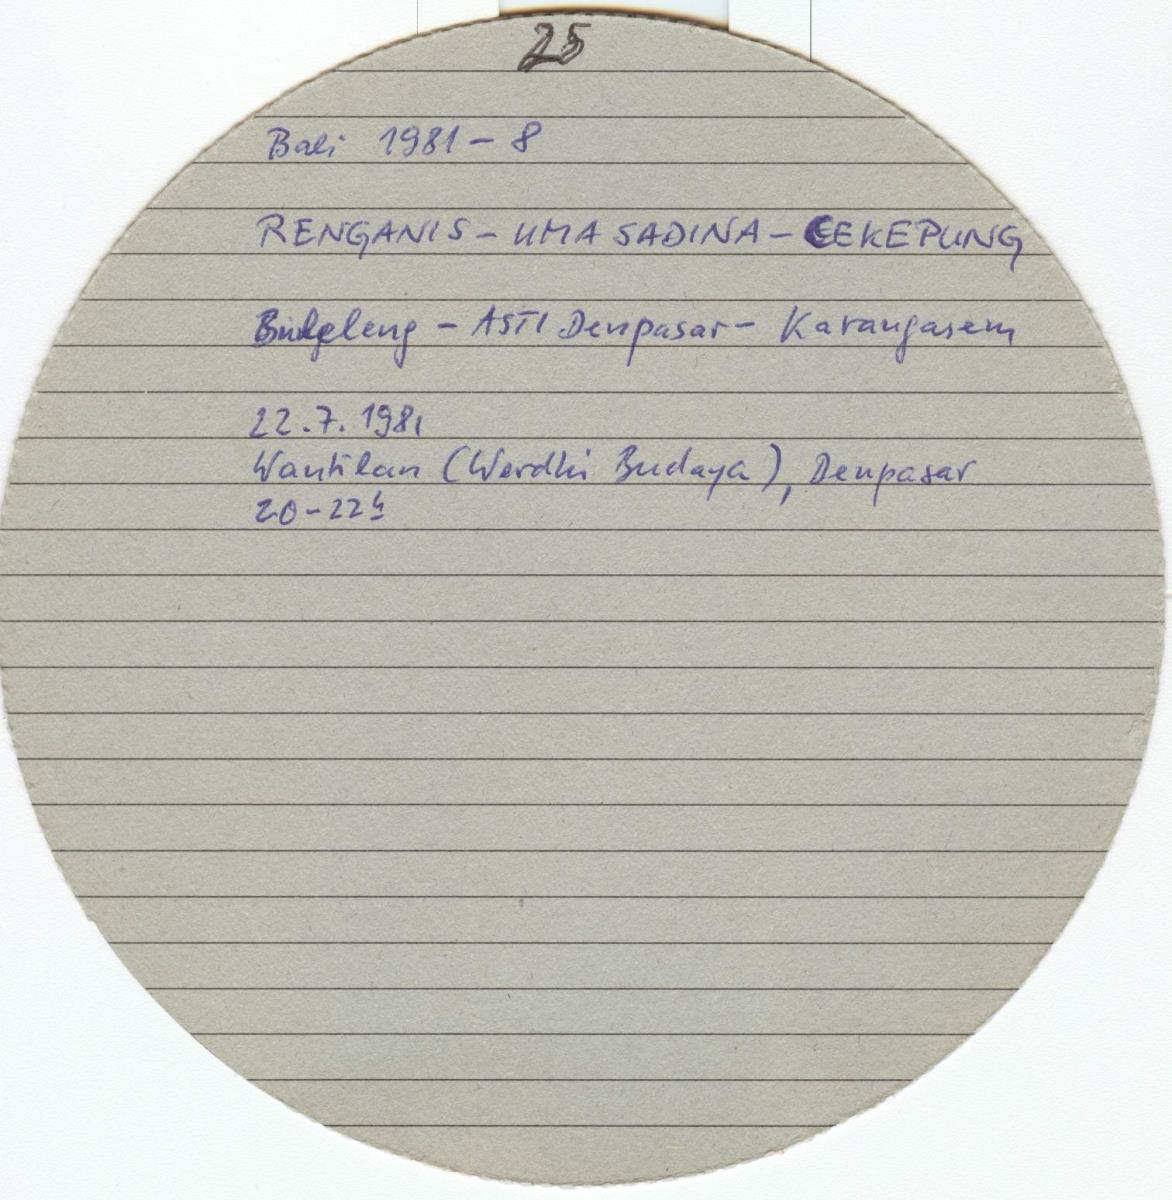 25
Bali 1981 - 8
RENGANIS - UMA SADINA - CEKEPUNG
Buleleng - ASTI Denpasar - Karangasem
22.7.1981
Wantilan (Werdhi Budaya), Denpasar
20-22h